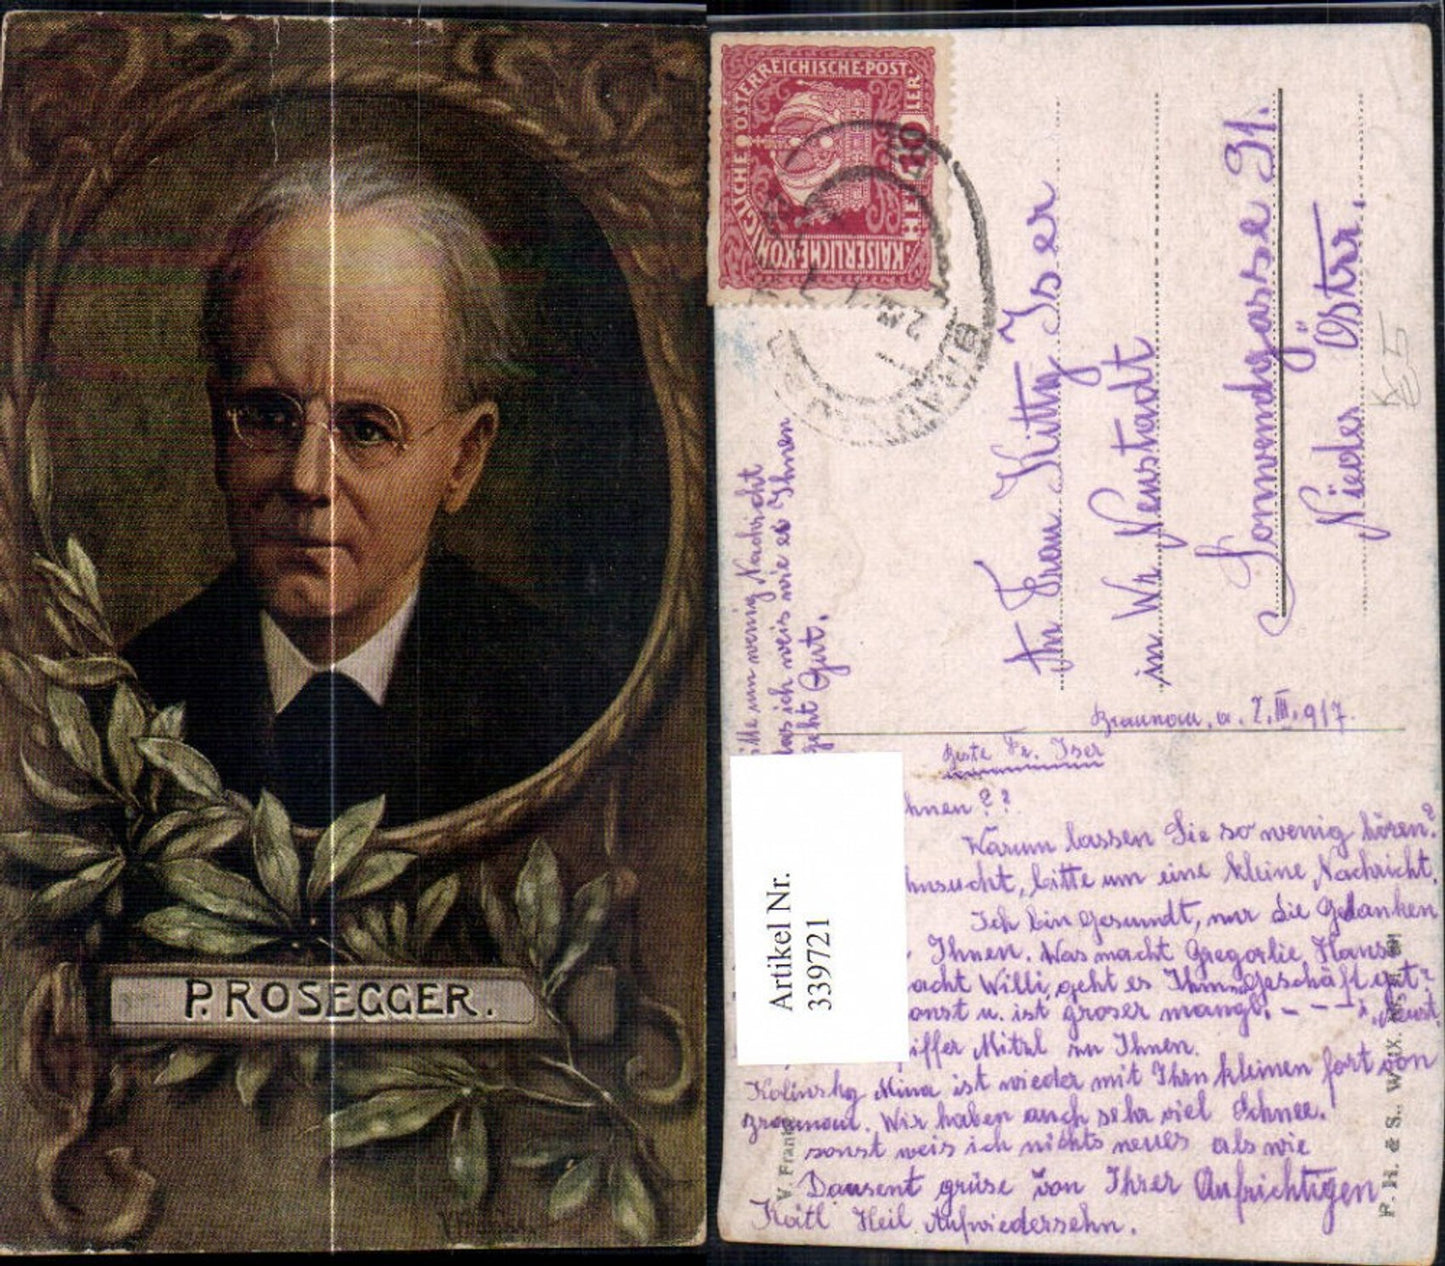 P. ROSEGGER.
KAISERLICHE KÖNIGLICHE ÖSTERREICHISCHE POST.
10 HELLER
BRAUNAU
An Frau Kitty Iser
in Wr. Neustadt
Sonnwendgasse 91.
Nieder Östr.
K55
um wenig Nachricht
das ich weis wie es Ihnen
geht Gut.
Braunau, a. 2. III. 917.
Beste Fr. Iser
hnen??
Warum lassen Sie so wenig hören?
hnsucht, bitte um eine kleine Nachricht.
Ich bin gesundt, nur die Gedanken
Ihnen. Was macht Gregorlie, Hans
acht Willi, geht es Geschäft gut?
onst u. ist groser mangl. - - -
iffer Mitzl zu Ihnen.
Kolinsky Mina ist wieder mit Ihrn kleinen fort von
Braunau. Wir haben auch sehr viel Schnee.
sonst weis ich nichts neues als wie
Dausent grüse von Ihrer Aufrichtigen
Kätl Heil Aufwiedersehn.
Artikel Nr.
339721
V. Frank
F. H. & S., W. IX.